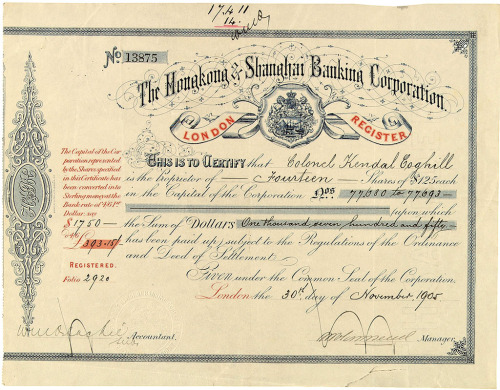 17.4.11
14.
No 13875
The Hongkong and Shanghai Banking Corporation.
LONDON REGISTER
The Capital of the Cor-
poration represented
by the Shares specified
in this Certificate has
been converted into
Sterling money at the
Dollar, say
$1750 —
REGISTERED.
Folio 2920
THIS IS TO CERTIFY that Colonel Kendal Coghill
is the Proprietor of Fourteen Shares of $125 each
in the Capital of the Corporation Nos 77680 to 77693
upon which
the Sum of Dollars One thousand seven hundred and fifty
has been paid up, subject to the Regulations of the Ordinance
and Deed of Settlement.
Given under the Common Seal of the Corporation,
London the 30th day of November 1905
Accountant.
Manager.